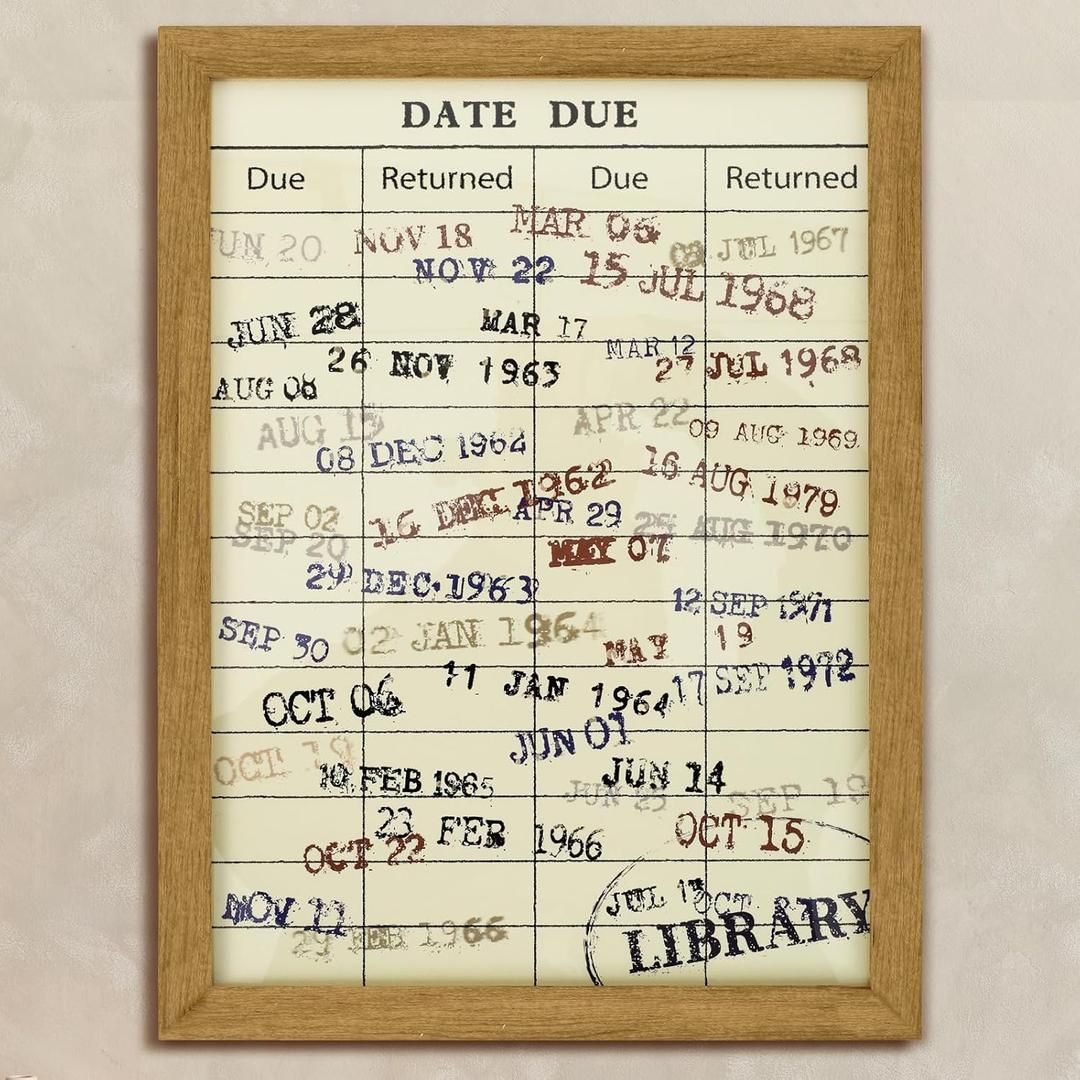 DATE DUE
Due Returned Due Returned
MAR 06
UN 20 NOV 18 JUL 1967
NOV 22 15 JUL 1968
JUN 28 MAR 17
MAR 12
26 NOV 1963 27 JUL 1968
AUG 08
AUG 15 APR 22 09 AUG 1969
08 DEC 1962
16 DEC 1962 16 AUG 1979
SEP 02 APR 29 AUG 1970
SEP 20 MAY 07
29 DEC 1963
12 SEP 1971
SEP 30 02 JAN 1964 MAY 19
11 JAN 1964 17 SEP 1972
OCT 06
JUN 01
OCT 18 FEB 1965 JUN 14
JUN 25 SEP 19
23 FEB 1966 OCT 15
OCT 22
NOV 11 JUL OCT
29 FEB 1966 LIBRARY